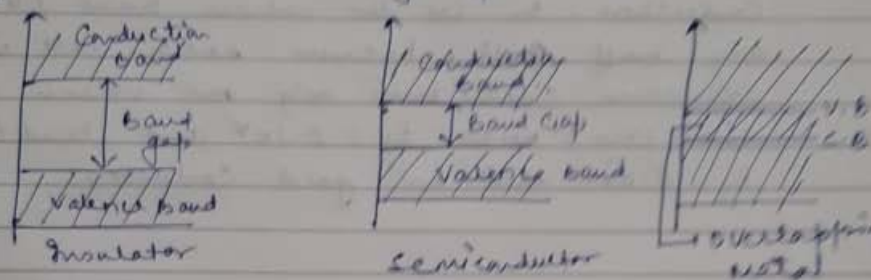 Conduction
Band
Band
gap
Valence Band
Insulator
Conduction
Band
Band Gap
Valence Band
Semiconductor
V.B
C.B
overlappin
metal